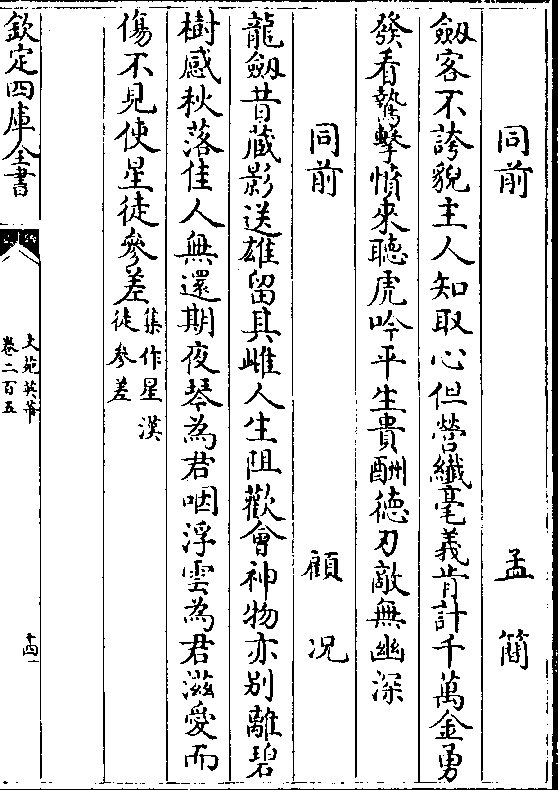 同前 孟簡
劔客不誇貌主人知取心但營纎毫義肯計千萬金勇
發看鷙擊憤來聽虎吟平生貴酬徳刃敵無幽深
同前 顧况
龍劔昔藏影送雄留其雌人生阻歡會神物亦别離碧
樹感秋落佳人無還期夜琴為君咽浮雲為君滋愛而
傷不見使星徒參差集作星漢徒參差
欽定四庫全書
文苑英華
卷二百五
十四